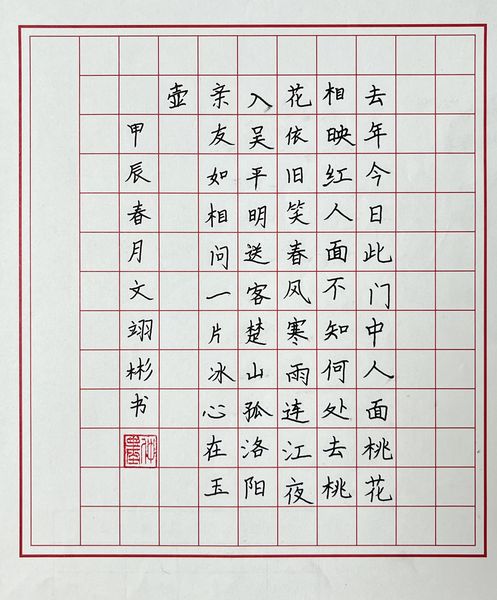 去年今日此门中人面桃花
相映红人面不知何处去桃
花依旧笑春风寒雨连江夜
入吴平明送客楚山孤洛阳
亲友如相问一片冰心在玉
壶
甲辰春月文翊彬书